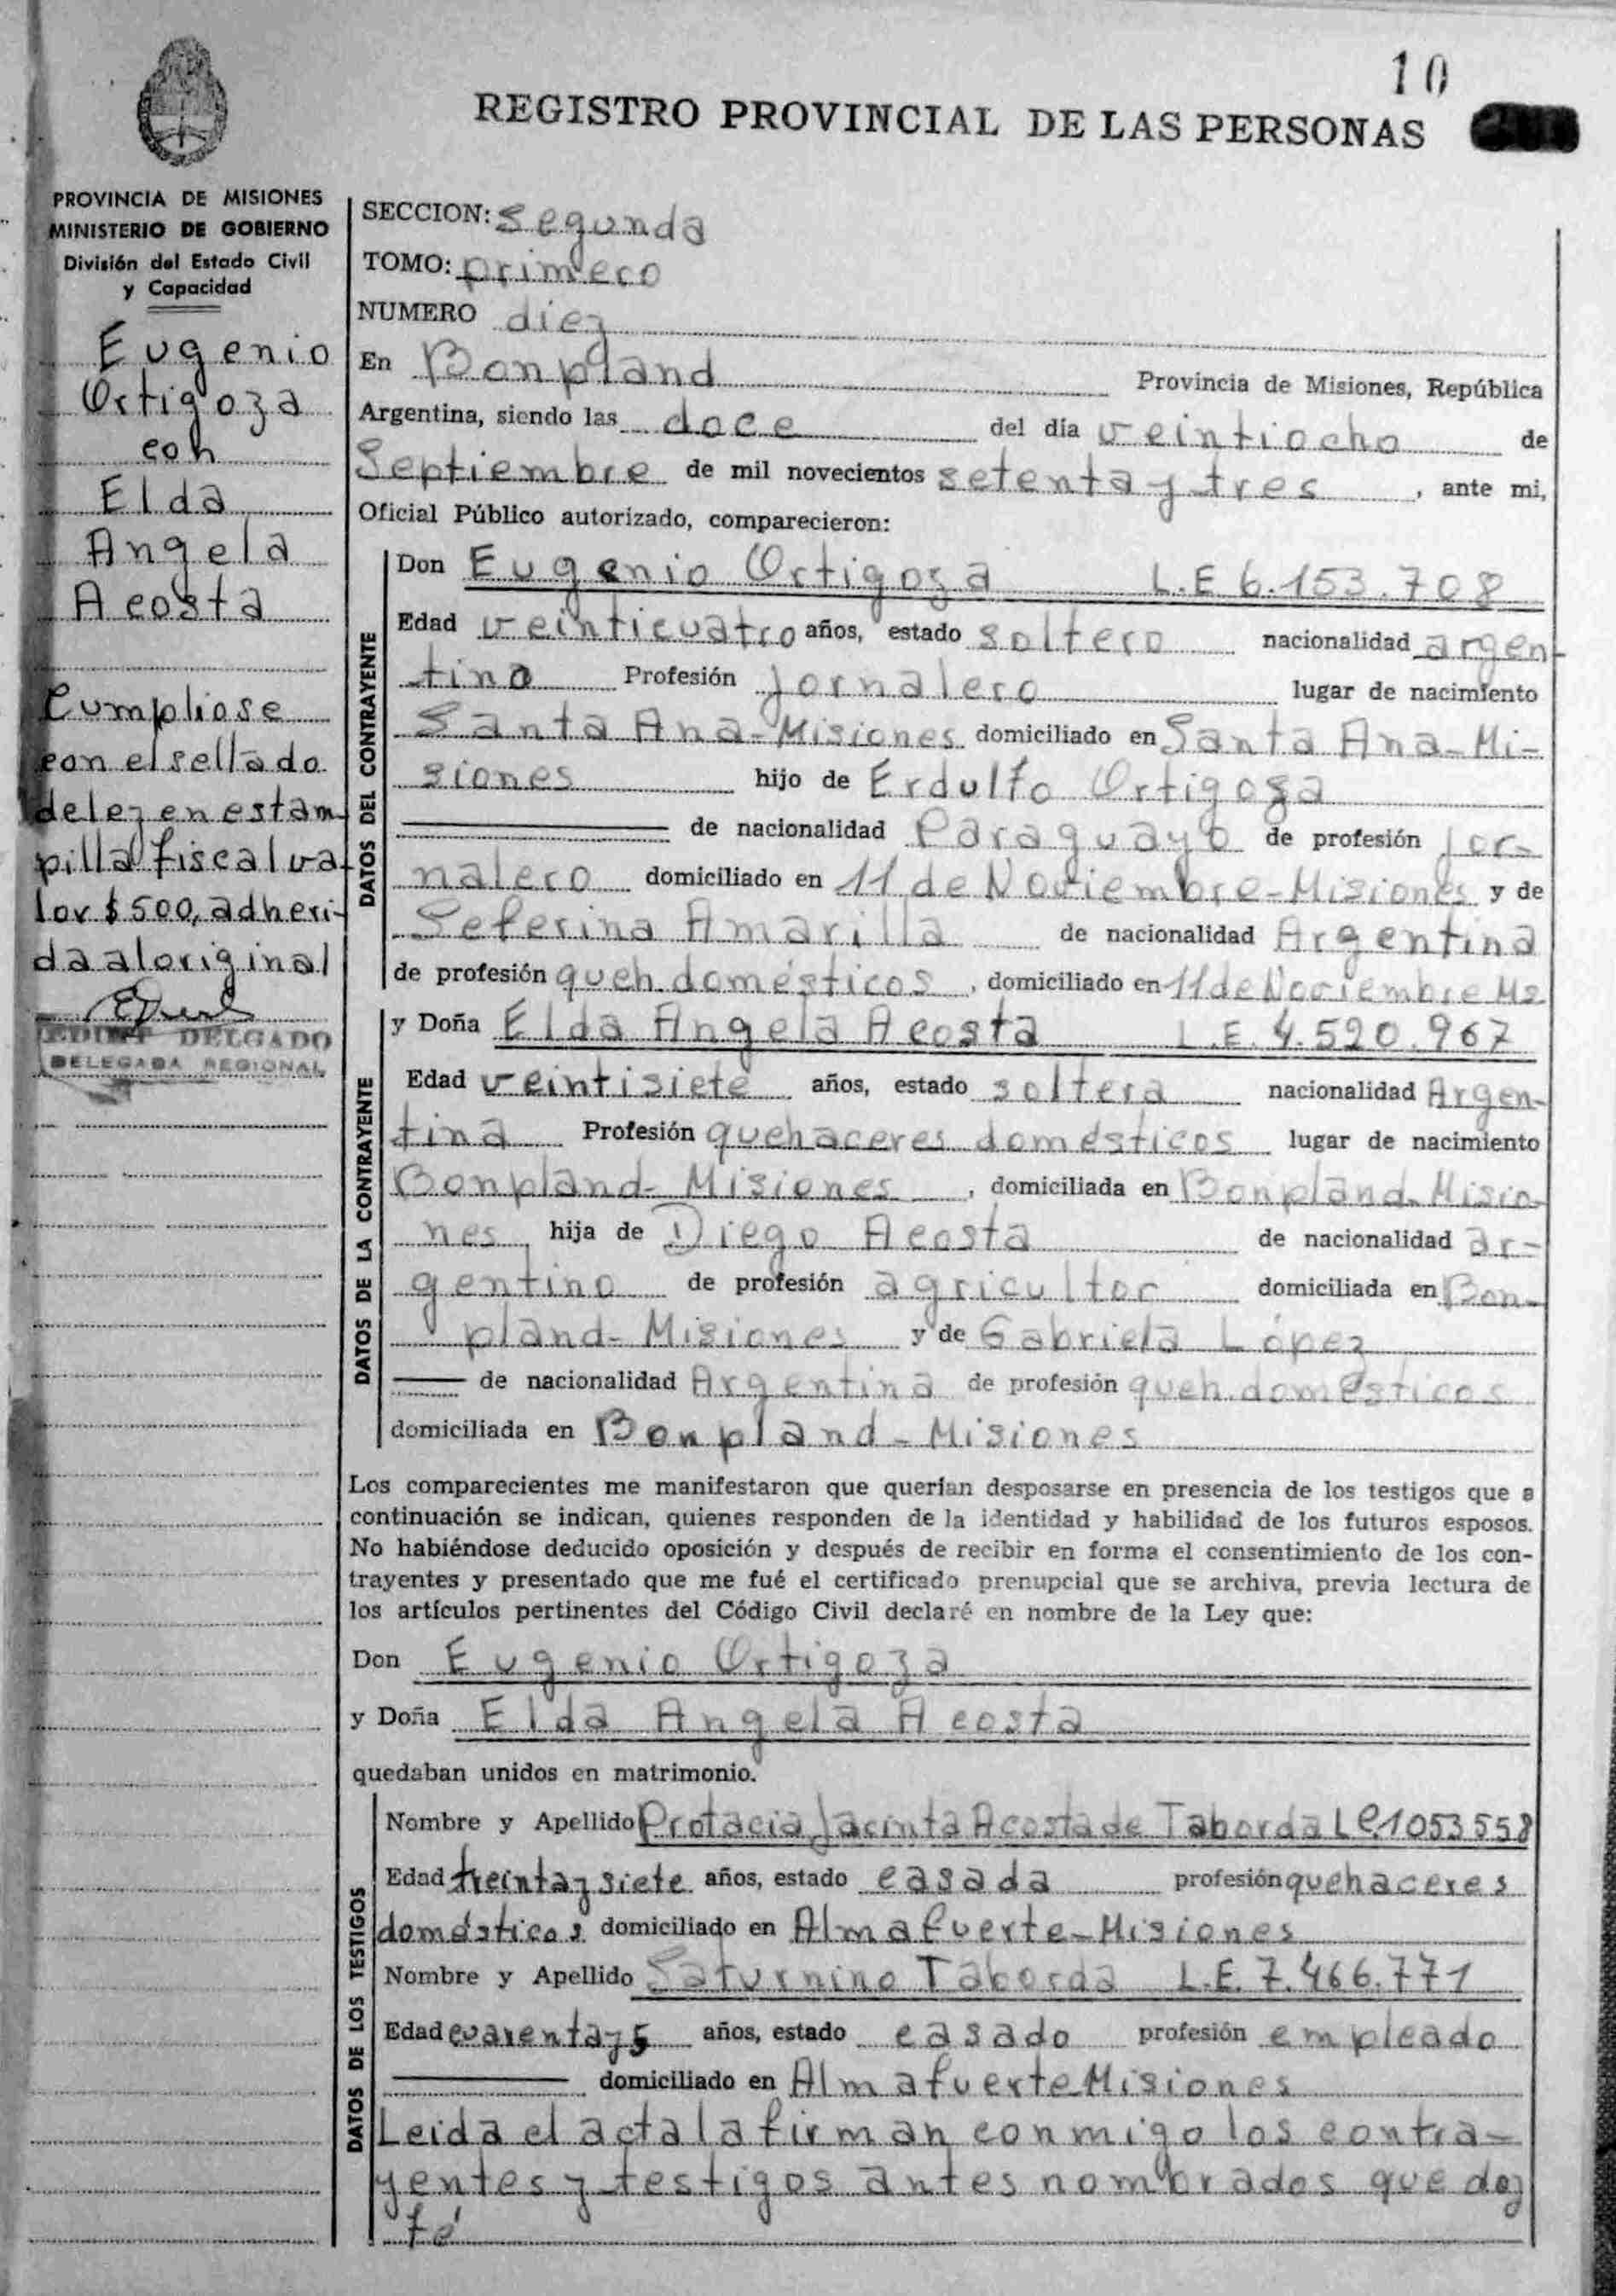 10
REGISTRO PROVINCIAL DE LAS PERSONAS
PROVINCIA DE MISIONES
MINISTERIO DE GOBIERNO
División del Estado Civil
y Capacidad
Eugenio
Ortigoza
con
Elda
Angela
Acosta
Cumpliose
con el sellado
de ley en estam-
pilla fiscal va-
lor $ 500, adheri-
da al original
DELGADO
DELEGADA REGIONAL
SECCION: Segunda
TOMO: primero
NUMERO diez
En Bonpland Provincia de Misiones, República
Argentina, siendo las doce del día veintiocho de
Septiembre de mil novecientos setenta y tres , ante mi,
Oficial Público autorizado, comparecieron:
DATOS DEL CONTRAYENTE
Don Eugenio Ortigoza L.E 6.153.708
Edad veinticuatro años, estado soltero nacionalidad argen-
tino Profesión Jornalero lugar de nacimiento
Santa Ana-Misiones domiciliado en Santa Ana-Mi-
siones hijo de Erdulfo Ortigoza
de nacionalidad Paraguayo de profesión Jor-
nalero domiciliado en 11 de Noviembre-Misiones y de
Seferina Amarilla de nacionalidad Argentina
de profesión queh. domésticos , domiciliado en 11 de Noviembre Ms
DATOS DE LA CONTRAYENTE
y Doña Elda Angela Acosta L.E. 4.520.967
Edad veintisiete años, estado soltera nacionalidad Argen-
tina Profesión quehaceres domésticos lugar de nacimiento
Bonpland-Misiones , domiciliada en Bonpland-Misio-
nes hija de Diego Acosta de nacionalidad ar-
gentino de profesión agricultor domiciliada en Bon-
pland-Misiones y de Gabriela López
de nacionalidad Argentina de profesión queh. domésticos
domiciliada en Bonpland-Misiones
Los comparecientes me manifestaron que querían desposarse en presencia de los testigos que a
continuación se indican, quienes responden de la identidad y habilidad de los futuros esposos.
No habiéndose deducido oposición y después de recibir en forma el consentimiento de los con-
trayentes y presentado que me fué el certificado prenupcial que se archiva, previa lectura de
los artículos pertinentes del Código Civil declaré en nombre de la Ley que:
Don Eugenio Ortigoza
y Doña Elda Angela Acosta
quedaban unidos en matrimonio.
DATOS DE LOS TESTIGOS
Nombre y Apellido Protacia Jacinta Acosta de Taborda L e. 1053558
Edad treinta y siete años, estado casada profesión quehaceres
domésticos domiciliado en Almafuerte-Misiones
Nombre y Apellido Saturnino Taborda L.E. 7.466.771
Edad cuarenta y 5 años, estado casado profesión empleado
domiciliado en Almafuerte Misiones
Leida el acta la firman conmigo los contra-
yentes y testigos antes nombrados que doy
fé